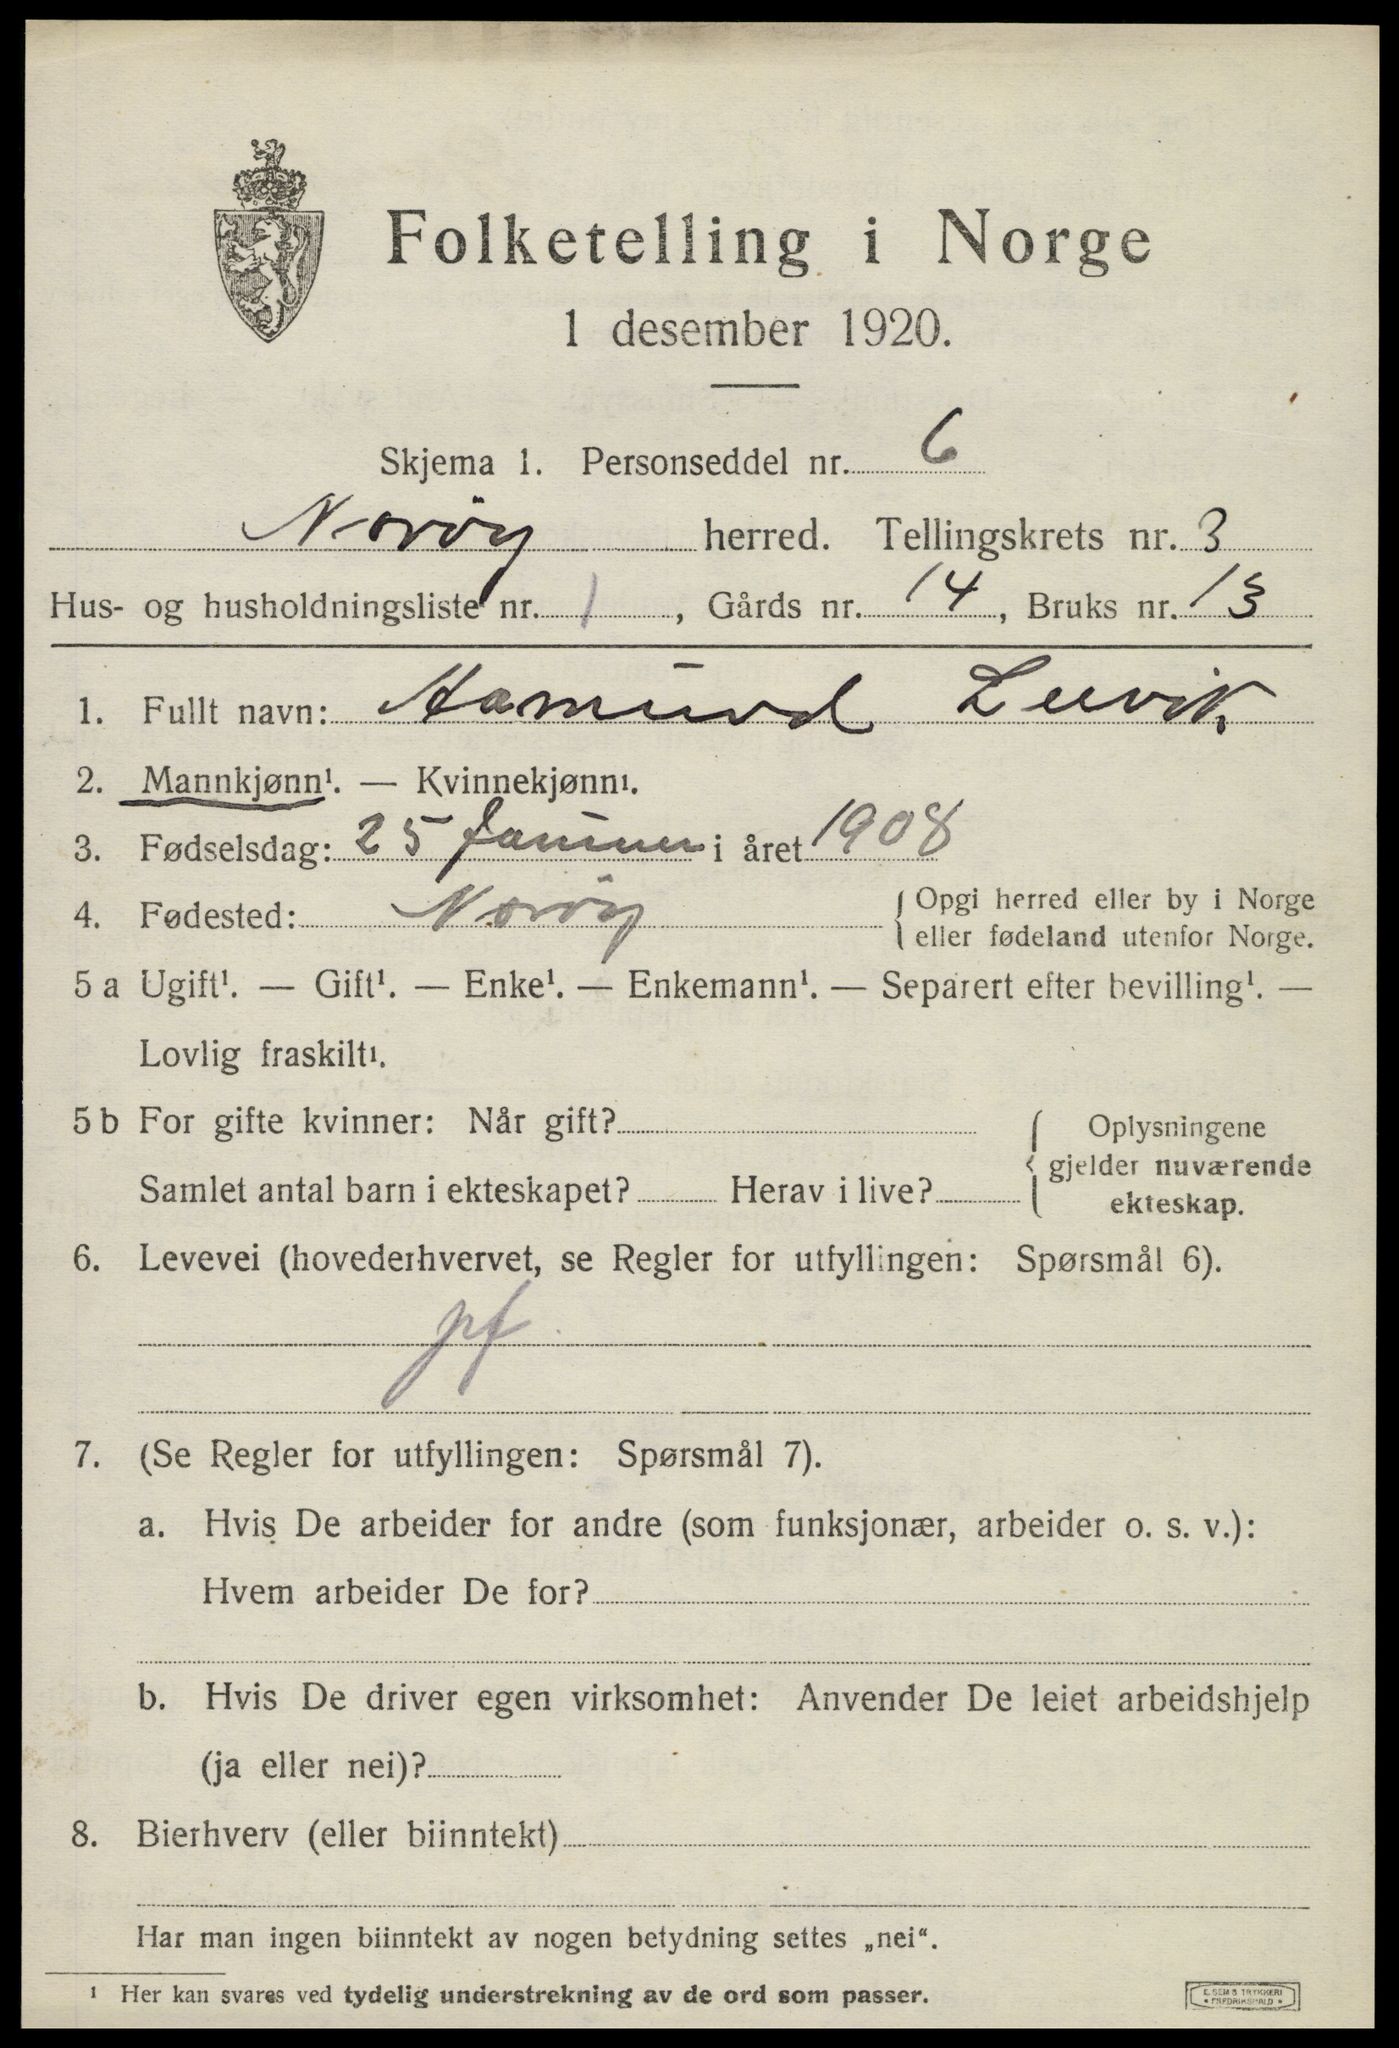 Folketelling i Norge
1 desember 1920.
Skjema 1. Personseddel nr. 6
Norøy herred. Tellingskrets nr. 3
Hus- og husholdningsliste nr. 1, Gårds nr. 14, Bruks nr. 13
1. Fullt navn: Aamund Leevik
2. Mannkjønn¹. — Kvinnekjønn¹.
3. Fødselsdag: 25 Januar i året 1908
4. Fødested: Norøy { Opgi herred eller by i Norge
eller fødeland utenfor Norge.
5 a Ugift¹. — Gift¹. — Enke¹. — Enkemann¹. — Separert efter bevilling¹. —
Lovlig fraskilt¹.
5 b For gifte kvinner: Når gift? { Oplysningene
gjelder nuværende
Samlet antal barn i ekteskapet? Herav i live?
ekteskap.
6. Levevei (hovederhvervet, se Regler for utfyllingen: Spørsmål 6).
pf
7. (Se Regler for utfyllingen: Spørsmål 7).
a. Hvis De arbeider for andre (som funksjonær, arbeider o. s. v.):
Hvem arbeider De for?
b. Hvis De driver egen virksomhet: Anvender De leiet arbeidshjelp
(ja eller nei)?
8. Bierhverv (eller biinntekt)
Har man ingen biinntekt av nogen betydning settes „nei“.
¹ Her kan svares ved tydelig understrekning av de ord som passer.
E. SEM'S TRYKKERI
• FREDRIKSHALD •